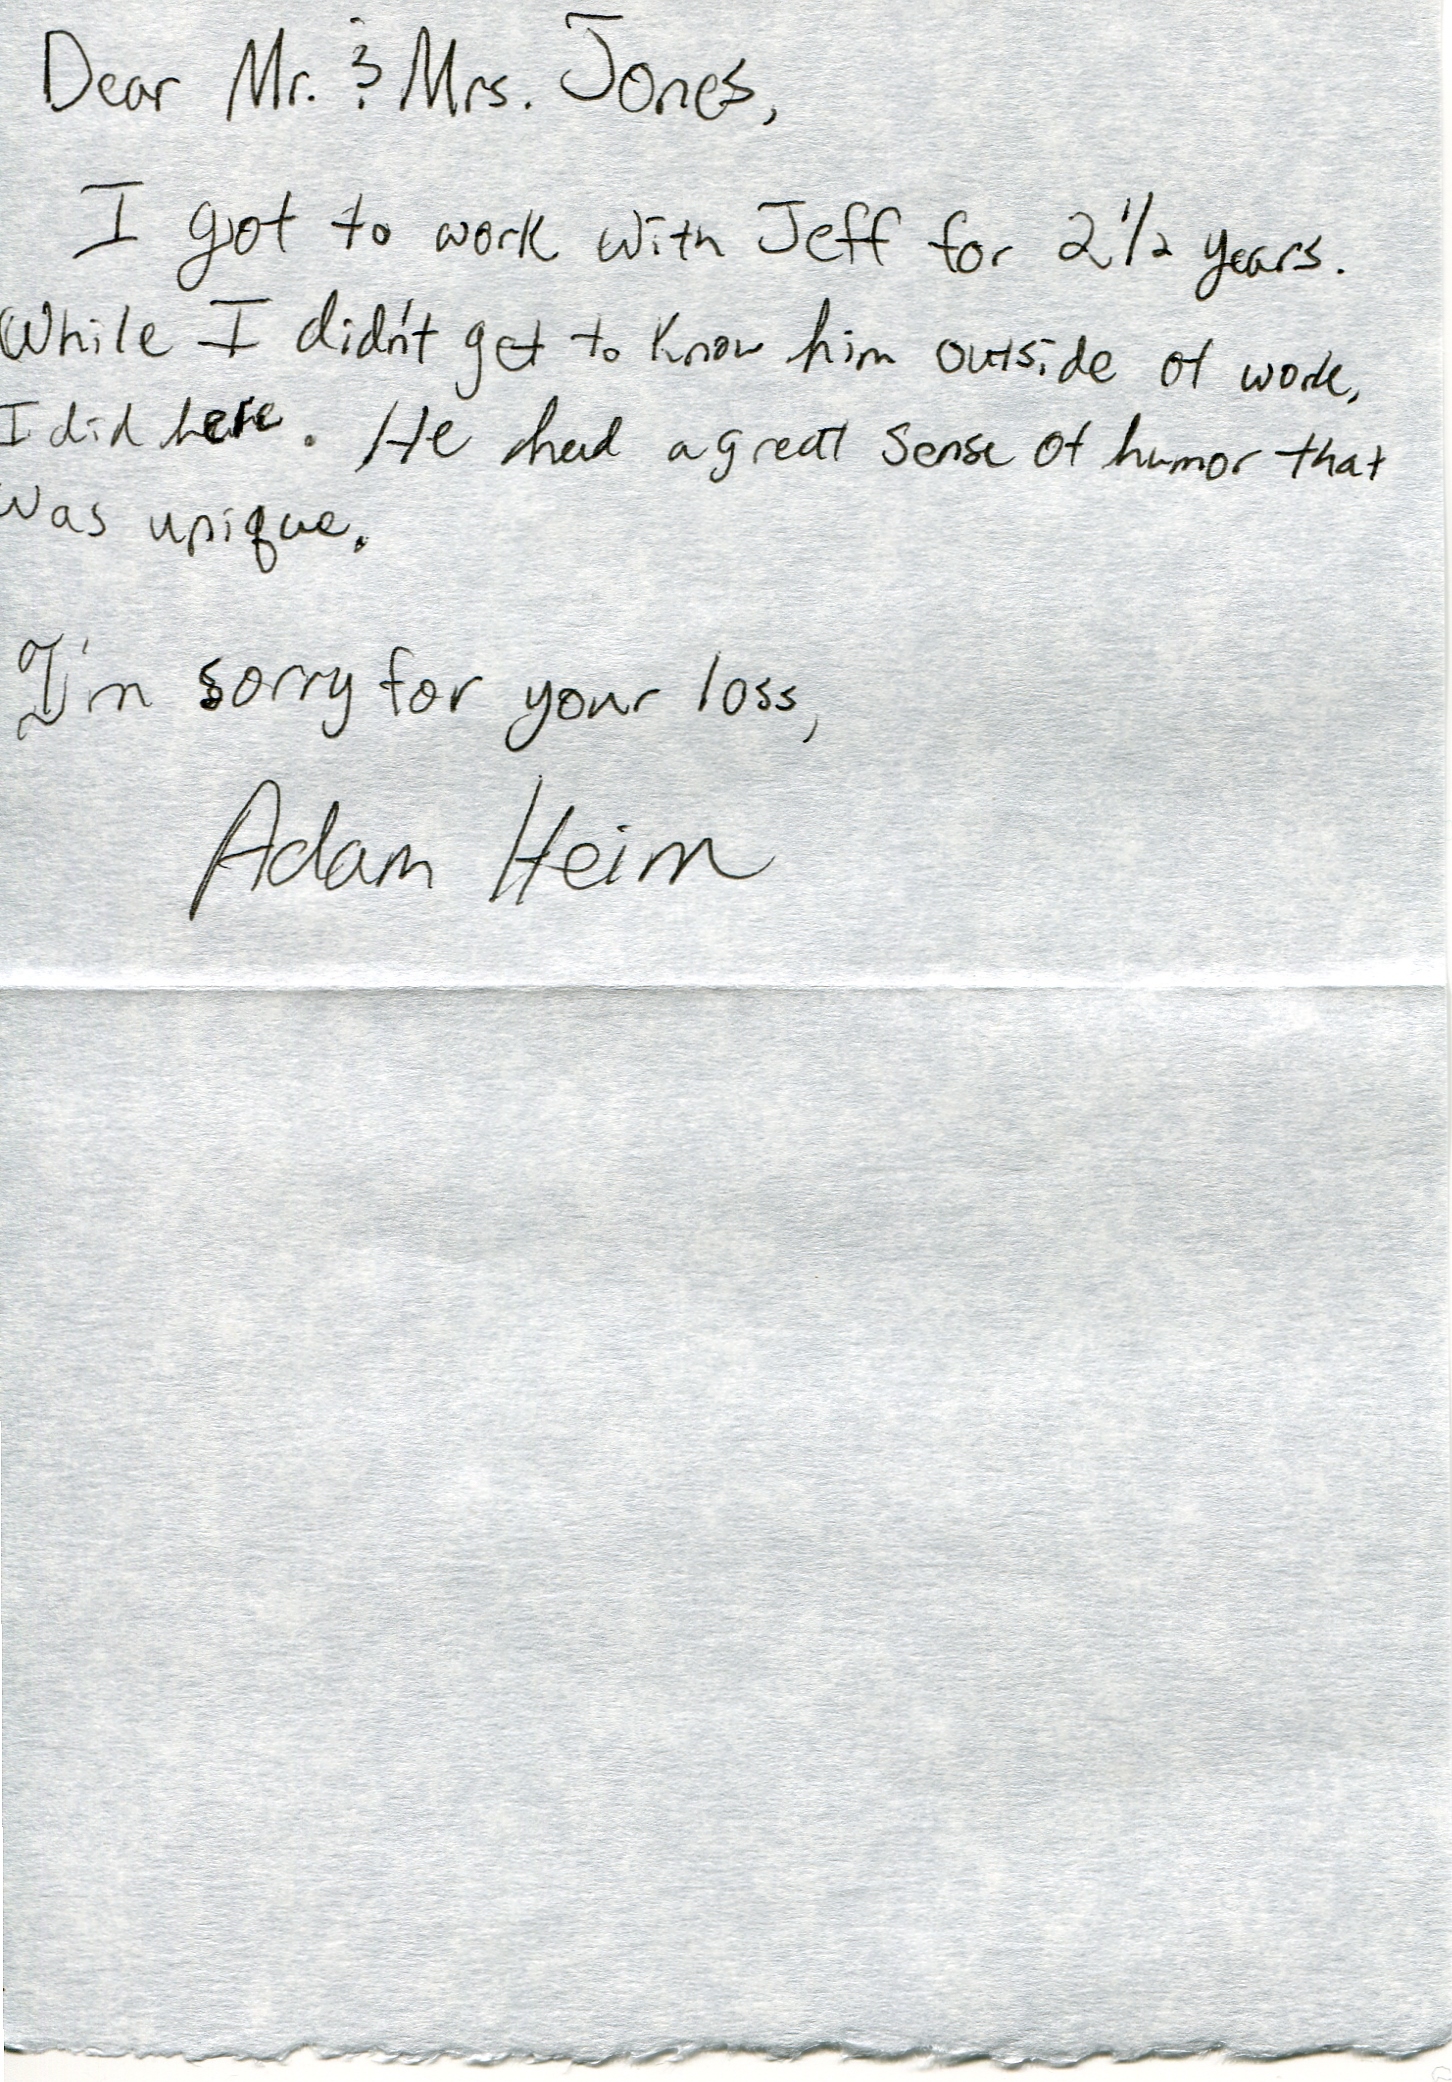 Dear Mr. & Mrs. Jones,
I got to work with Jeff for 2 1/2 years.
While I didn't get to know him outside of work,
I did here. He had a great sense of humor that
was unique.
I'm sorry for your loss,
Adam Heim